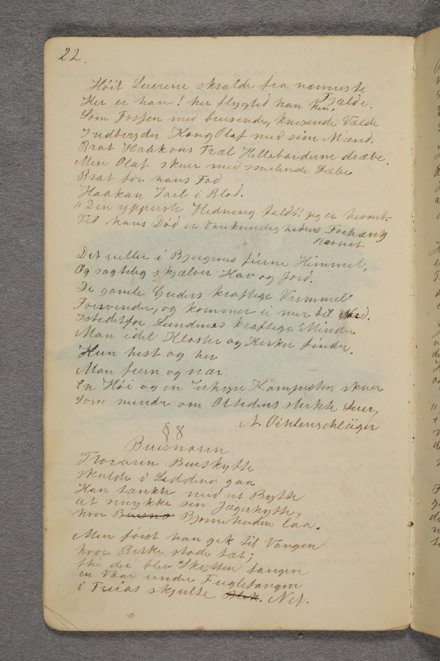 22.
Høit Luerene skralde fra nærmeste
Her er han! her flygted han hen. Fjelde.
Som Fossen med brusende, knusende Vælde
Indbryder Kong Olaf med sine Mænd.
Brat Hakkons Træl Hellebarden dræbe,
Men Olaf skuer med smilende Læbe
Brat for hans Fod
Haakan Jarl i Blod.
"Den ypperste Hedning faldt! jeg er hevnet
Til hans Død er Forhæng
revnet
Det ruller i Bjergene fierne Himmel,
Og sagtelig skjælver Hav og Jord.
De gamle Guders kraftige Vrimmel
Forsvinder, og kommer ei mer til Nord.
Istedetfor Lundenes kraftige Minder
Man idel Kloster og Kirker finder.
Kun hist og her
Man fiern og nær
En Høi og en Kampesten skuer
Som minder om Oldtidens slukte Luer.
A. Oehlenschläger
§ 8
Buesnoren
Floraren Bueskytte
skulde i Leddno gaa
Han tænkte med et Bytte
at smykke sin Jægerhytte,
hvor Bjørnehuden laa.
Men først han gik til Vangen
hvor Birke stode tæt;
thi der blev Skytten fangen
en Vaar under Fuglesangen
i Freias skjulte Net.